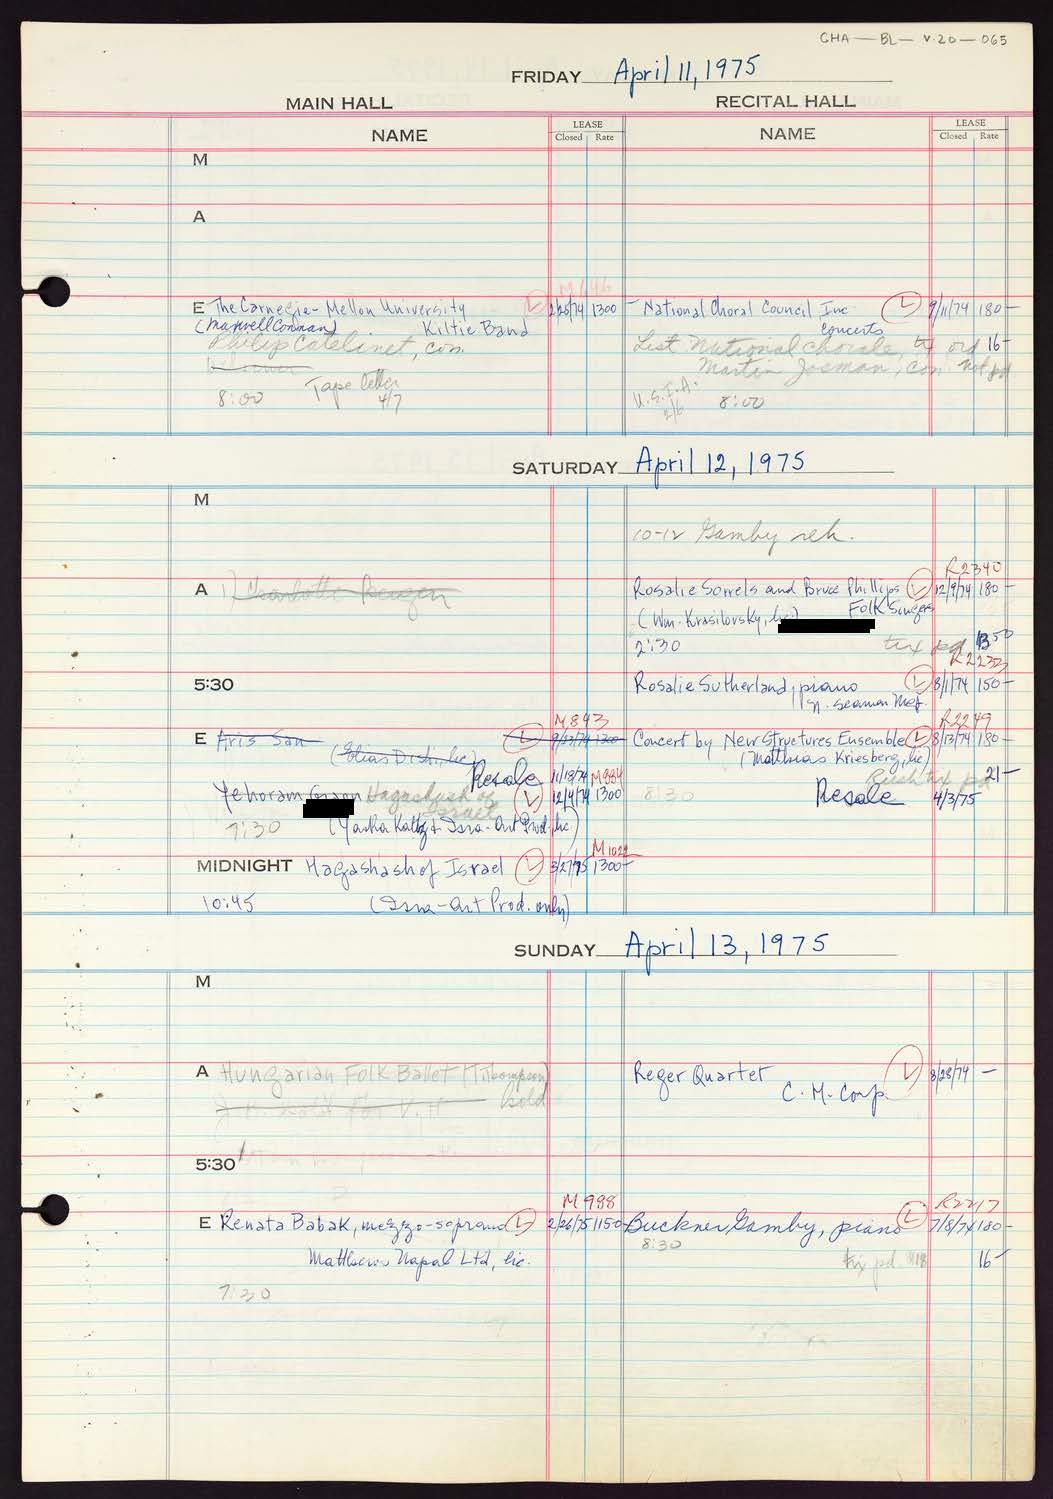 CHA — BL — V.20 — 065
FRIDAY April 11, 1975
MAIN HALL RECITAL HALL
NAME LEASE Closed Rate NAME LEASE Closed Rate
M
A
M 646
E The Carnegie-Mellon University 2/25/74 1300 — National Choral Council, Inc L 9/11/74 180 —
Kiltie Band Concerts
Philip Catelinet, con. List National Chorale, ord 16 —
Martin Josman, con. not pd
Tape letter 4/7 U.S.I.A. 2/6
8:00 8:00
SATURDAY April 12, 1975
M
10-12 Gamby reh.
R2340
A 1) Charlotte Bergen Rosalie Sorrels and Bruce Phillips L 12/9/74 180 —
(Wm. Krasilovsky, Inc) Folk Singers
2:30 tix pd. 13 50
R2232
5:30 Rosalie Sutherland, piano L 8/1/74 150 —
N. Seaman Mgt.
M 843 R2249
E Aris San L 9/13/74 1300 Concert by New Structures Ensemble L 8/13/74 180 —
(Matthias Kriesberg, Inc)
Resale 11/18/74 M984 tix pd 21 —
Yehoram Gaon Hagashash of Israel L 12/4/74 1300 8:30 Resale 4/3/75
7:30 (Yasha Katz & Isra-Art Prod. Inc)
M 1022
MIDNIGHT Hagashash of Israel L 3/27/75 1300 —
10:45 (Isra-Art Prod. only)
SUNDAY April 13, 1975
M
A Hungarian Folk Ballet (Thompson) Reger Quartet L 8/28/74 —
hold C.M. Corp.
5:30
M 998 R2217
E Renata Babak, mezzo-soprano L 2/26/75 1150 — Buckner Gamby, piano L 7/8/74 180 —
8:30
Matthew Napal Ltd, lic. tix pd. 16 —
7:30